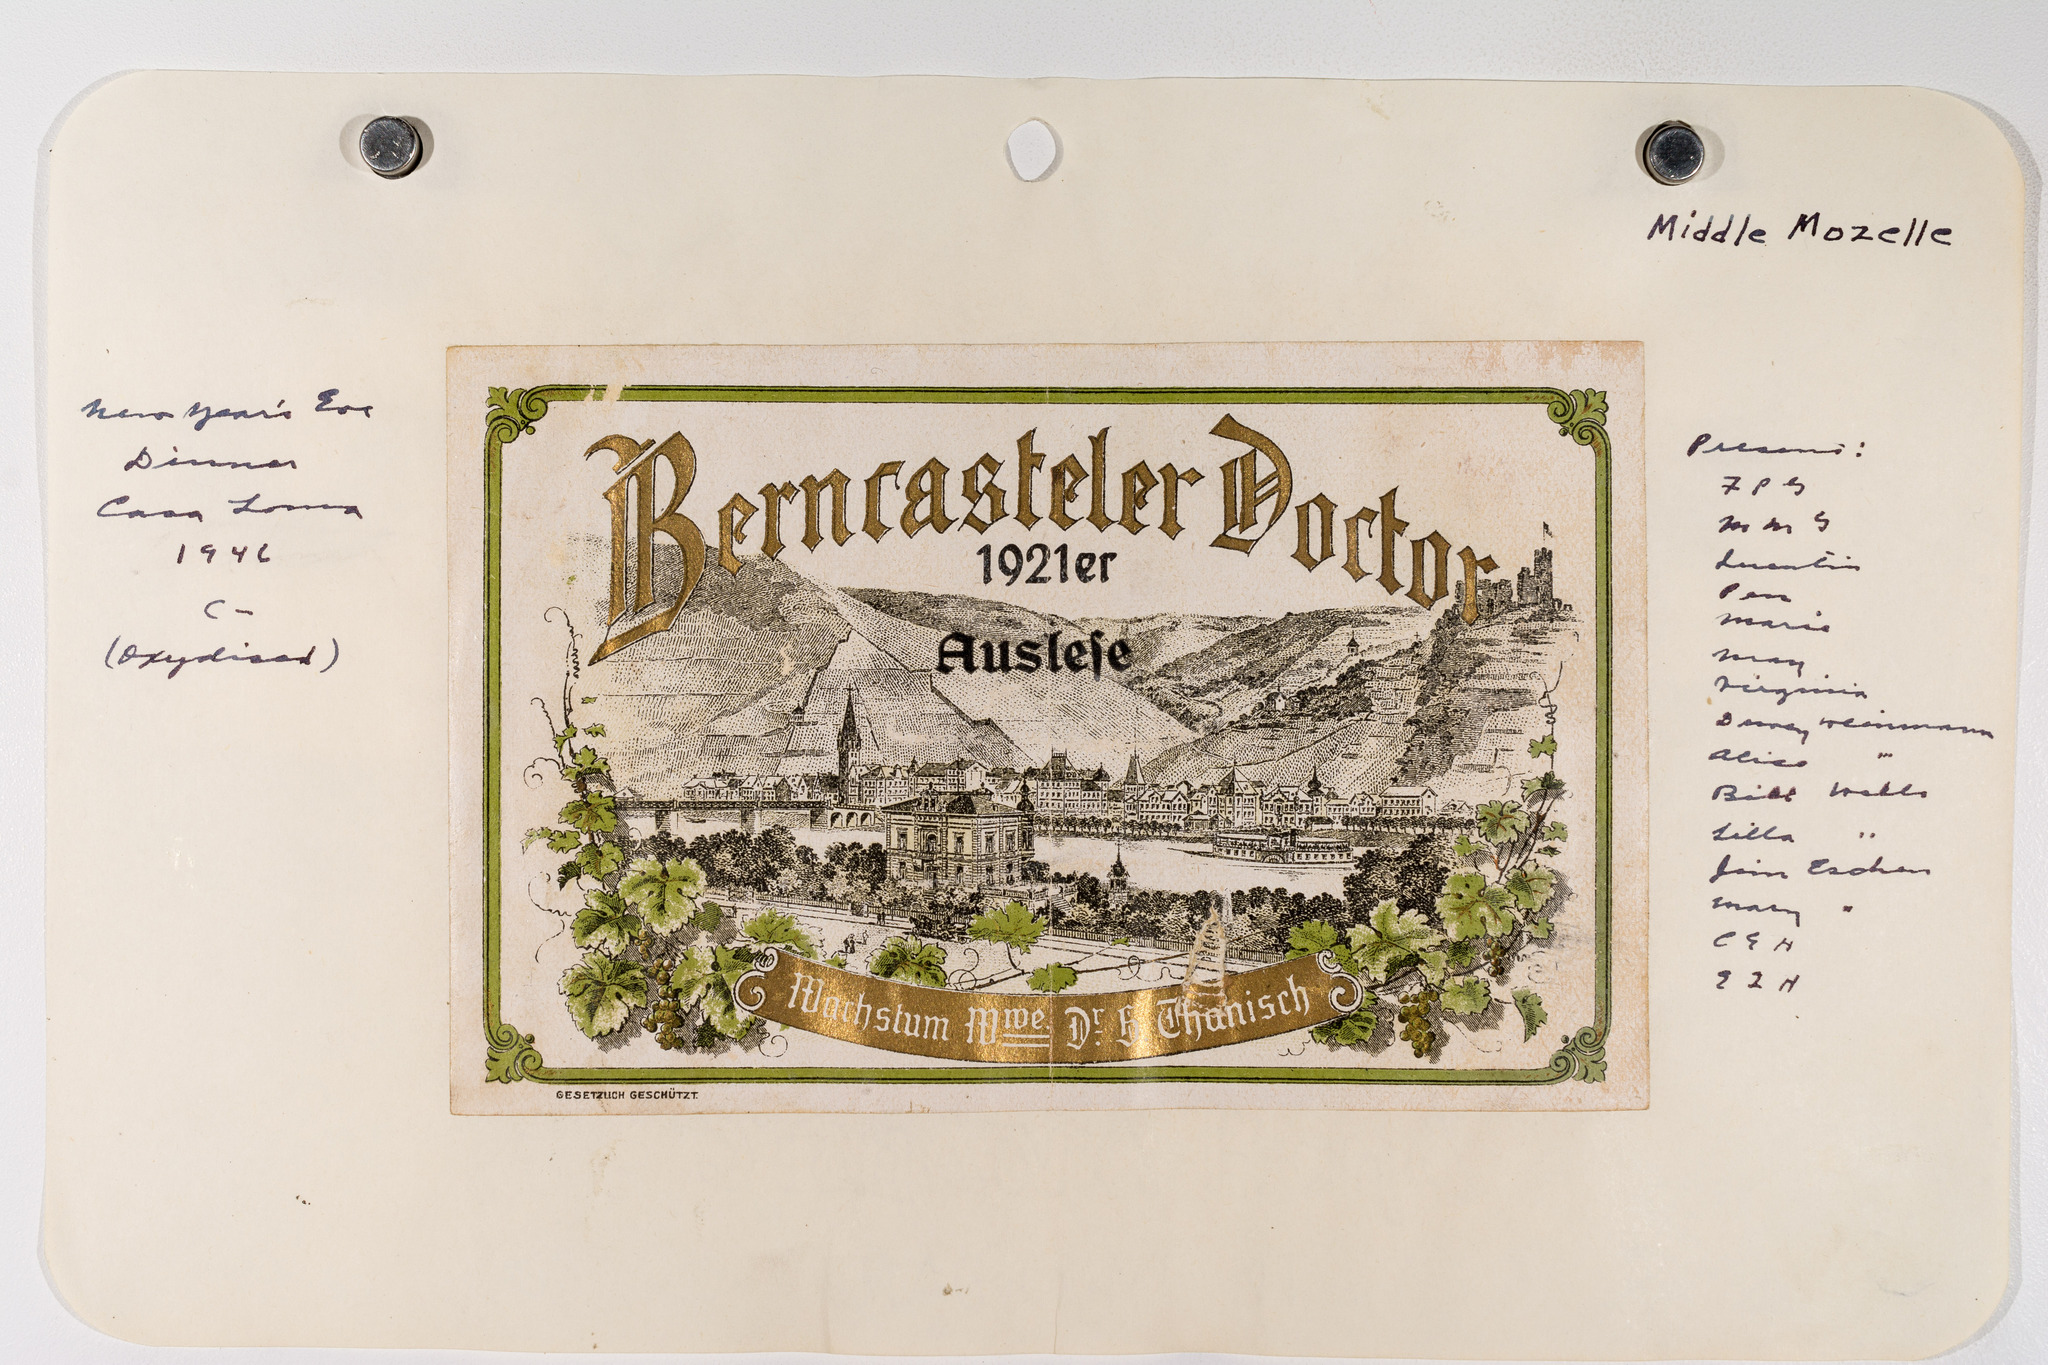 Middle Mozelle
New Year's Eve
Dinner
Casa Loma
1946
C-
(Oxydised)
Berncasteler Doctor
1921er
Auslese
Wachstum Wwe. Dr. H. Thanisch
GESETZLICH GESCHÜTZT.
Present:
F P G
M M G
Quentin
Pen
Marie
May
Virginia
Dewey Weinmann
Alice "
Bill Wells
Lilla "
Jim Escher
Mary "
C E H
E I H